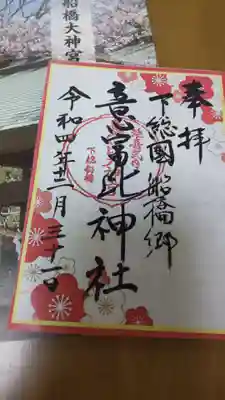 船橋大神宮
奉拝
下總國船橋郷
意富比神社
令和四年十二月三十一日